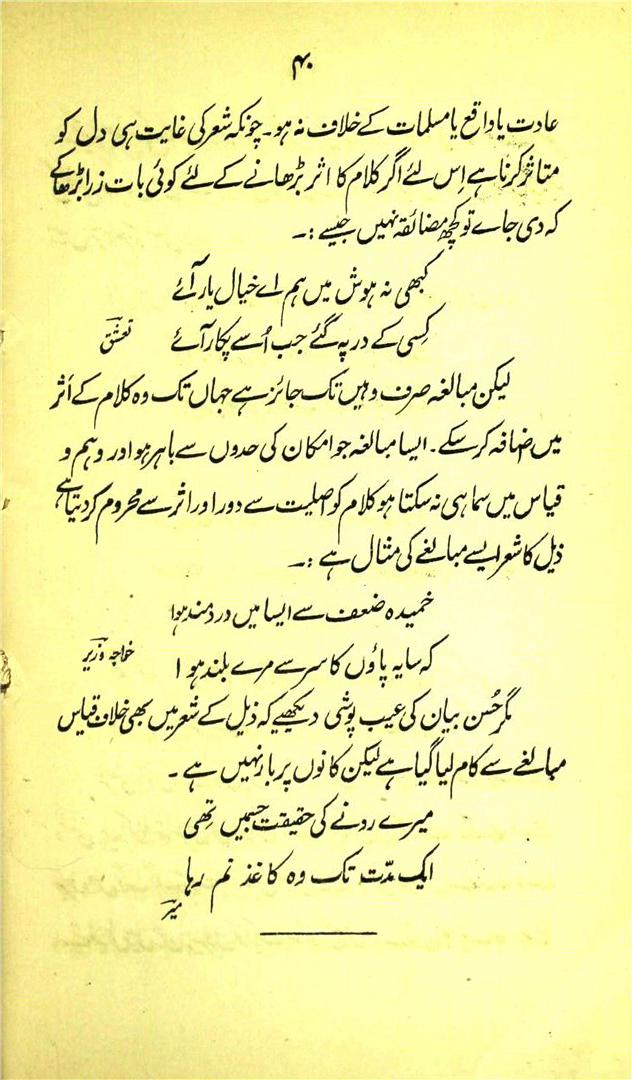 ۴۰
عادت یا واقع یا مسلمات کے خلاف نہ ہو۔ چونکہ شعر کی غایت ہی دل کو
متاثر کرنا ہے اِس لئے اگر کلام کا اثر بڑھانے کے لئے کوئی بات زرا بڑھا کے
کہ دی جاے تو کچھ مضائقہ نہیں جیسے :۔
کبھی نہ ہوش میں ہم اے خیال یار آئے
کِسی کے در پہ گئے جب اُسے پکار آئے تعشق
لیکن مبالغہ صرف وہیں تک جائز ہے جہاں تک وہ کلام کے اثر
میں اضافہ کر سکے۔ ایسا مبالغہ جو امکان کی حدوں سے باہر ہو اور وہم و
قیاس میں سما ہی نہ سکتا ہو کلام کو اصلیت سے دور اور اثر سے محروم کر دیتا ہے
ذیل کا شعر ایسے مبالغے کی مثال ہے :۔
خمیدہ ضعف سے ایسا میں دردمند ہوا
کہ سایہ پاؤں کا سر سے مرے بلند ہوا خواجہ وزیر
مگر حُسن بیان کی عیب پوشی دیکھیے کہ ذیل کے شعر میں بھی خلاف قیاس
مبالغے سے کام لیا گیا ہے لیکن کانوں پر بار نہیں ہے۔
میرے رونے کی حقیقت جسمیں تھی
ایک مدّت تک وہ کاغذ نم رہا
میر